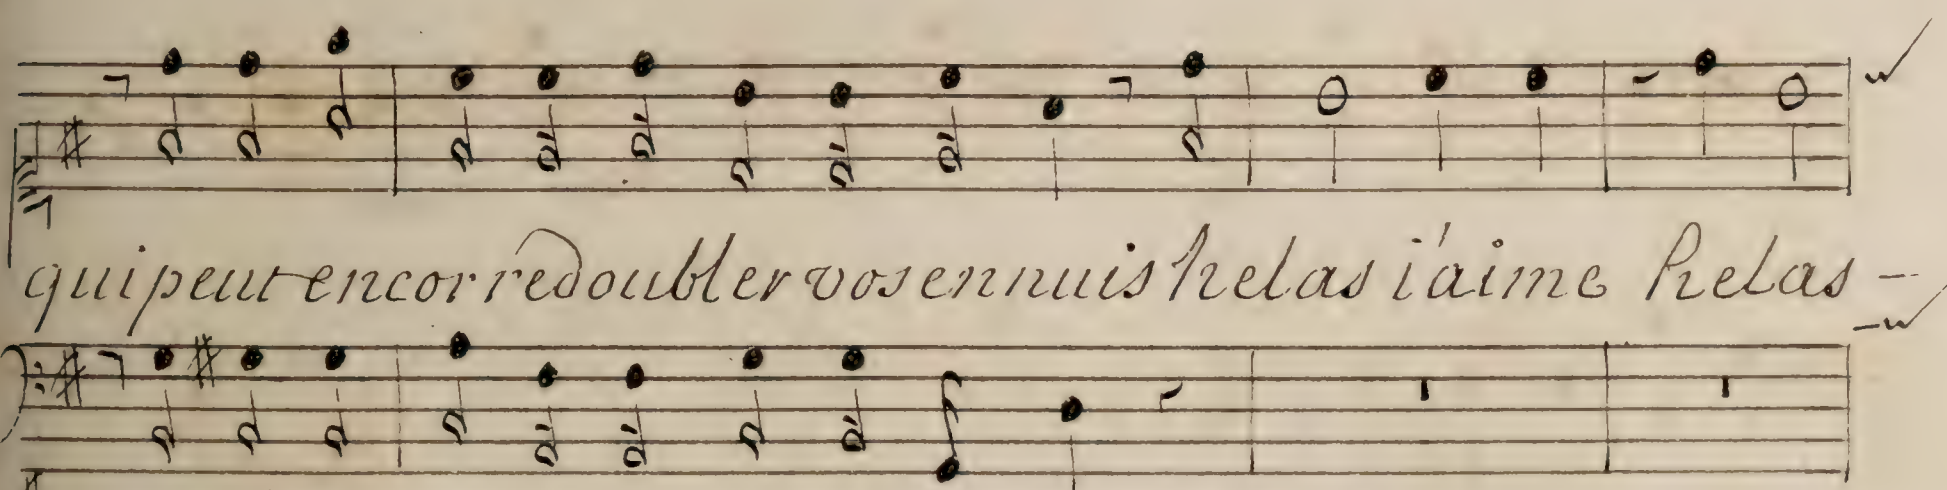 qui peut encor redoubler vos ennuis helas i'aime helas -